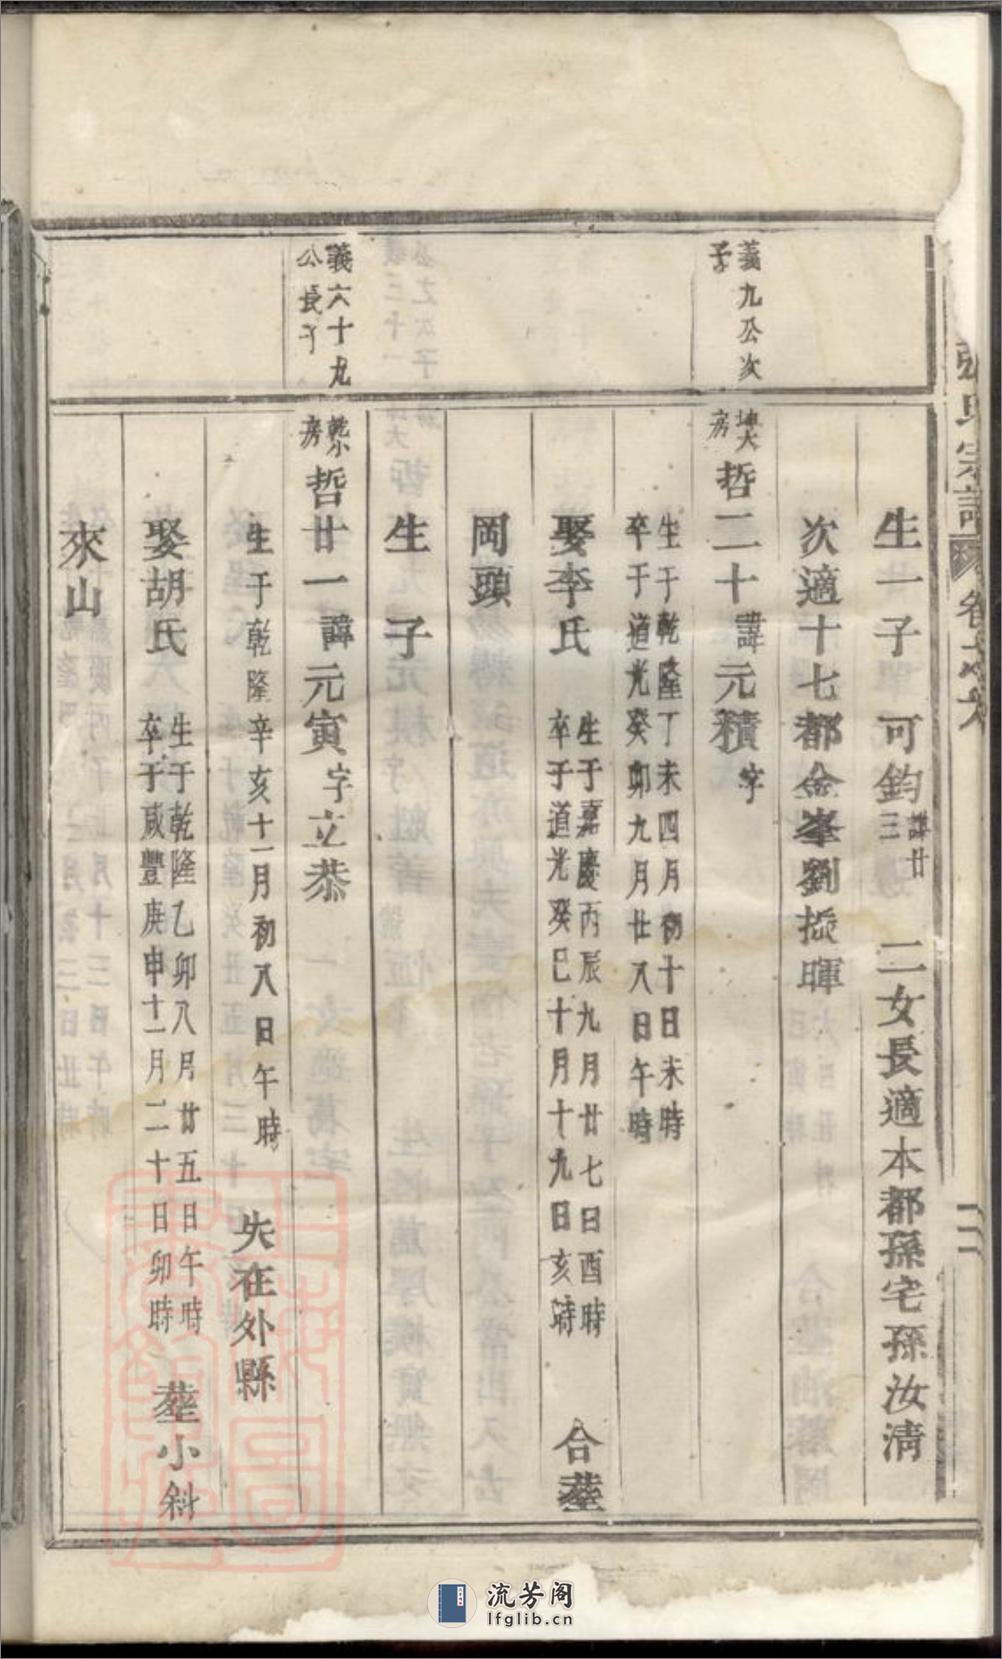 張氏宗譜 卷之 二
生一子 可鈞諱廿三 二女長適本都孫宅孫汝清
次適十七都金峯劉振暉
義九公次子
坤大房 哲二十諱元積字
生于乾隆丁未四月初十日未時
卒于道光癸卯九月廿八日午時
娶李氏 生于嘉慶丙辰九月廿七日酉時
卒于道光癸巳十月十九日亥時 合塟
岡頭
生 子
義六十九公長子
乾小房 哲廿一諱元寅字立恭
生于乾隆辛亥十一月初八日午時 失在外縣
娶胡氏 生于乾隆乙卯八月廿五日午時
卒于咸豐庚申十一月二十日卯時 塟小斜
來山
流芳阁
lfglib.cn